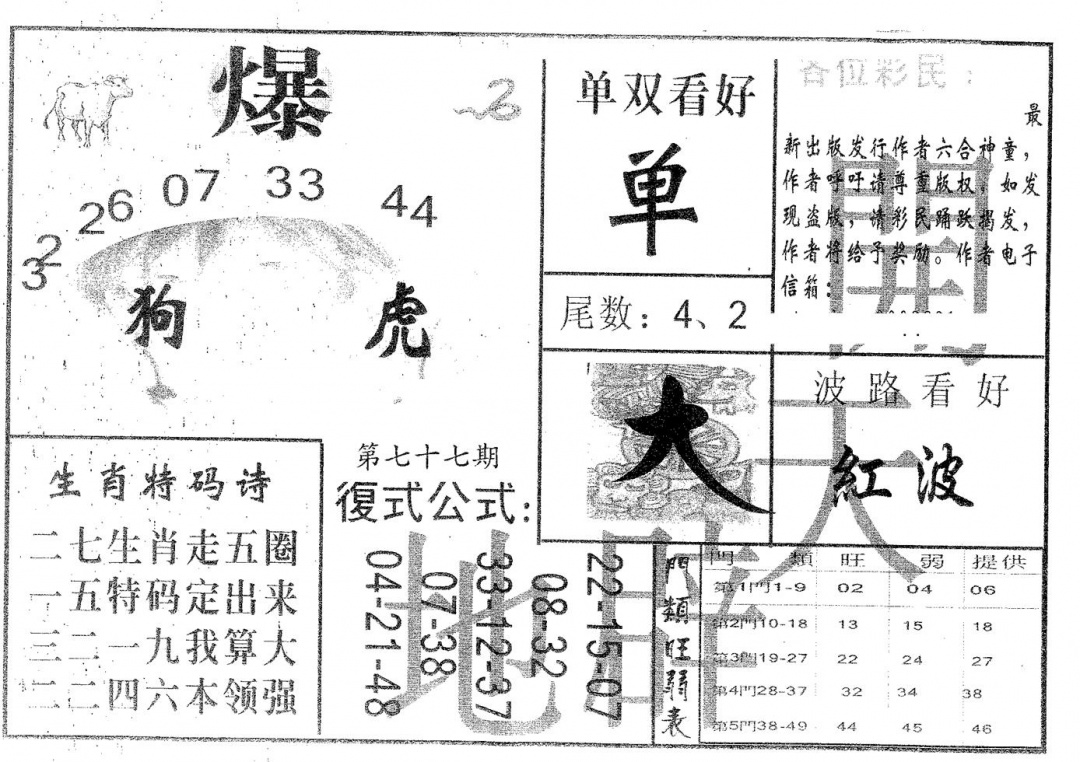 爆
32 26 07 33 44
狗 虎
单双看好
单
尾数：4、2
各位彩民：
最
新出版发行作者六合神童，
作者呼吁请尊重版权。如发
现盗版，请彩民踊跃揭发，
作者将给予奖励。作者电子
信箱：
大
波路看好
紅波
生肖特码诗
二七生肖走五圈
一五特码定出来
三二一九我算大
二二四六本领强
第七十七期
復式公式:
04-21-48
07-38
33-12-37
08-32
22-15-07
門類旺弱表
門類 旺 弱 提供
第1門1-9 02 04 06
第2門10-18 13 15 18
第3門19-27 22 24 27
第4門28-37 32 34 38
第5門38-49 44 45 46